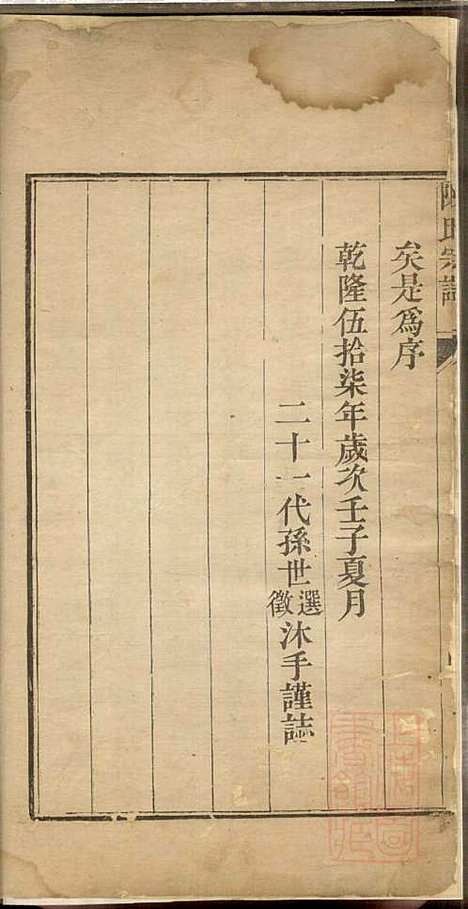 陳氏宗譜
矣是爲序
乾隆伍拾柒年歲次壬子夏月
二十一代孫世選徵沐手謹誌